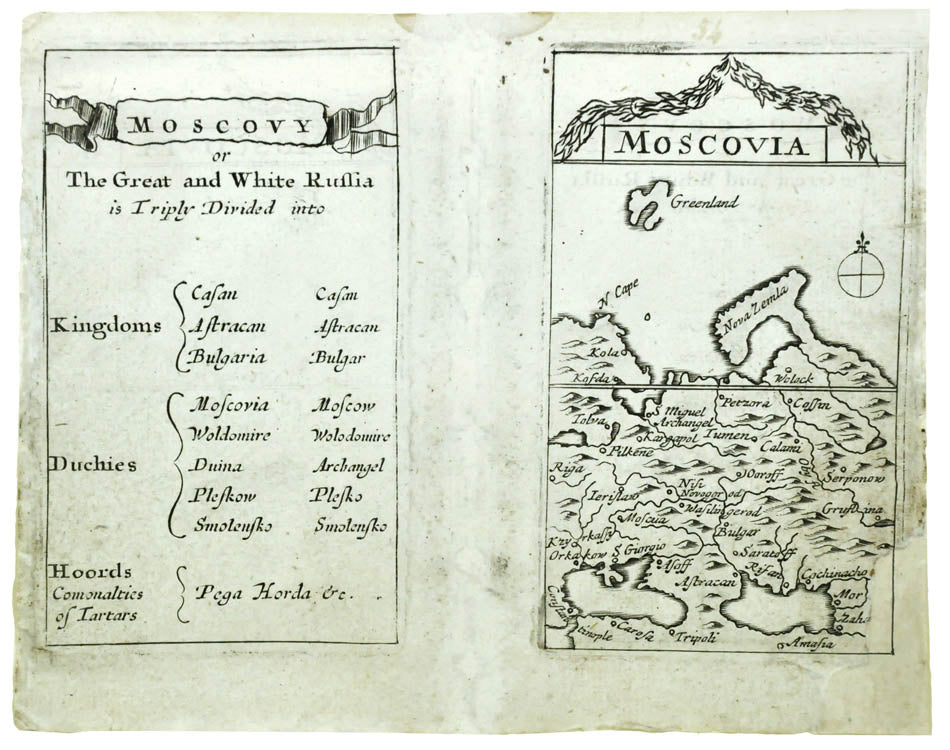 MOSCOVY
or
The Great and White Ruſſia
is Triply Divided into
Kingdoms
Caſan Caſan
Aſtracan Aſtracan
Bulgaria Bulgar
Duchies
Moſcovia Moſcow
Woldomire Wolodomire
Duina Archangel
Pleſkow Pleſko
Smolenſko Smolenſko
Hoords
Comonalties
of Tartars
Pega Horda &c.
54
MOSCOVIA
Greenland
N Cape
Nova Zemla
Kola
Koſda
Wolock
Petzora
Coſſin
S Miguel
Archangel
Tolva
Kargapol
Tumen
Calami
Pilkene
Oby R
Riga
Woroff
Serponow
Ieriſlaw
Niſi
Novogorod
Waſiligorod
Gruſtina
Moſcua
Bulgar
S Giorgio
Saratoff
Orkakow
Aſoff
Riſan
Cochinacho
Aſtracan
Mor
Zaha
Conſtantinople
Caroſa
Tripoli
Amaſia